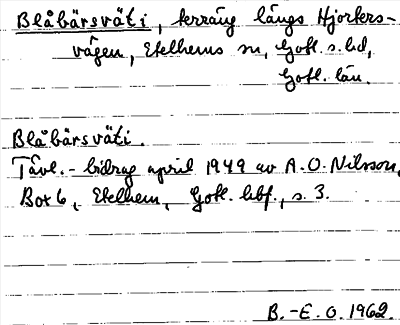 Blåbärsväti, terräng längs Hjorkers-
vägen, Etelhems sn, Gotl. s. hd,
Gotl. län.
Blåbärsväti.
Tävl.-bidrag april 1949 av A. O. Nilsson,
Box 6, Etelhem, Gotl. hbf., s. 3.
B.-E. O. 1962.